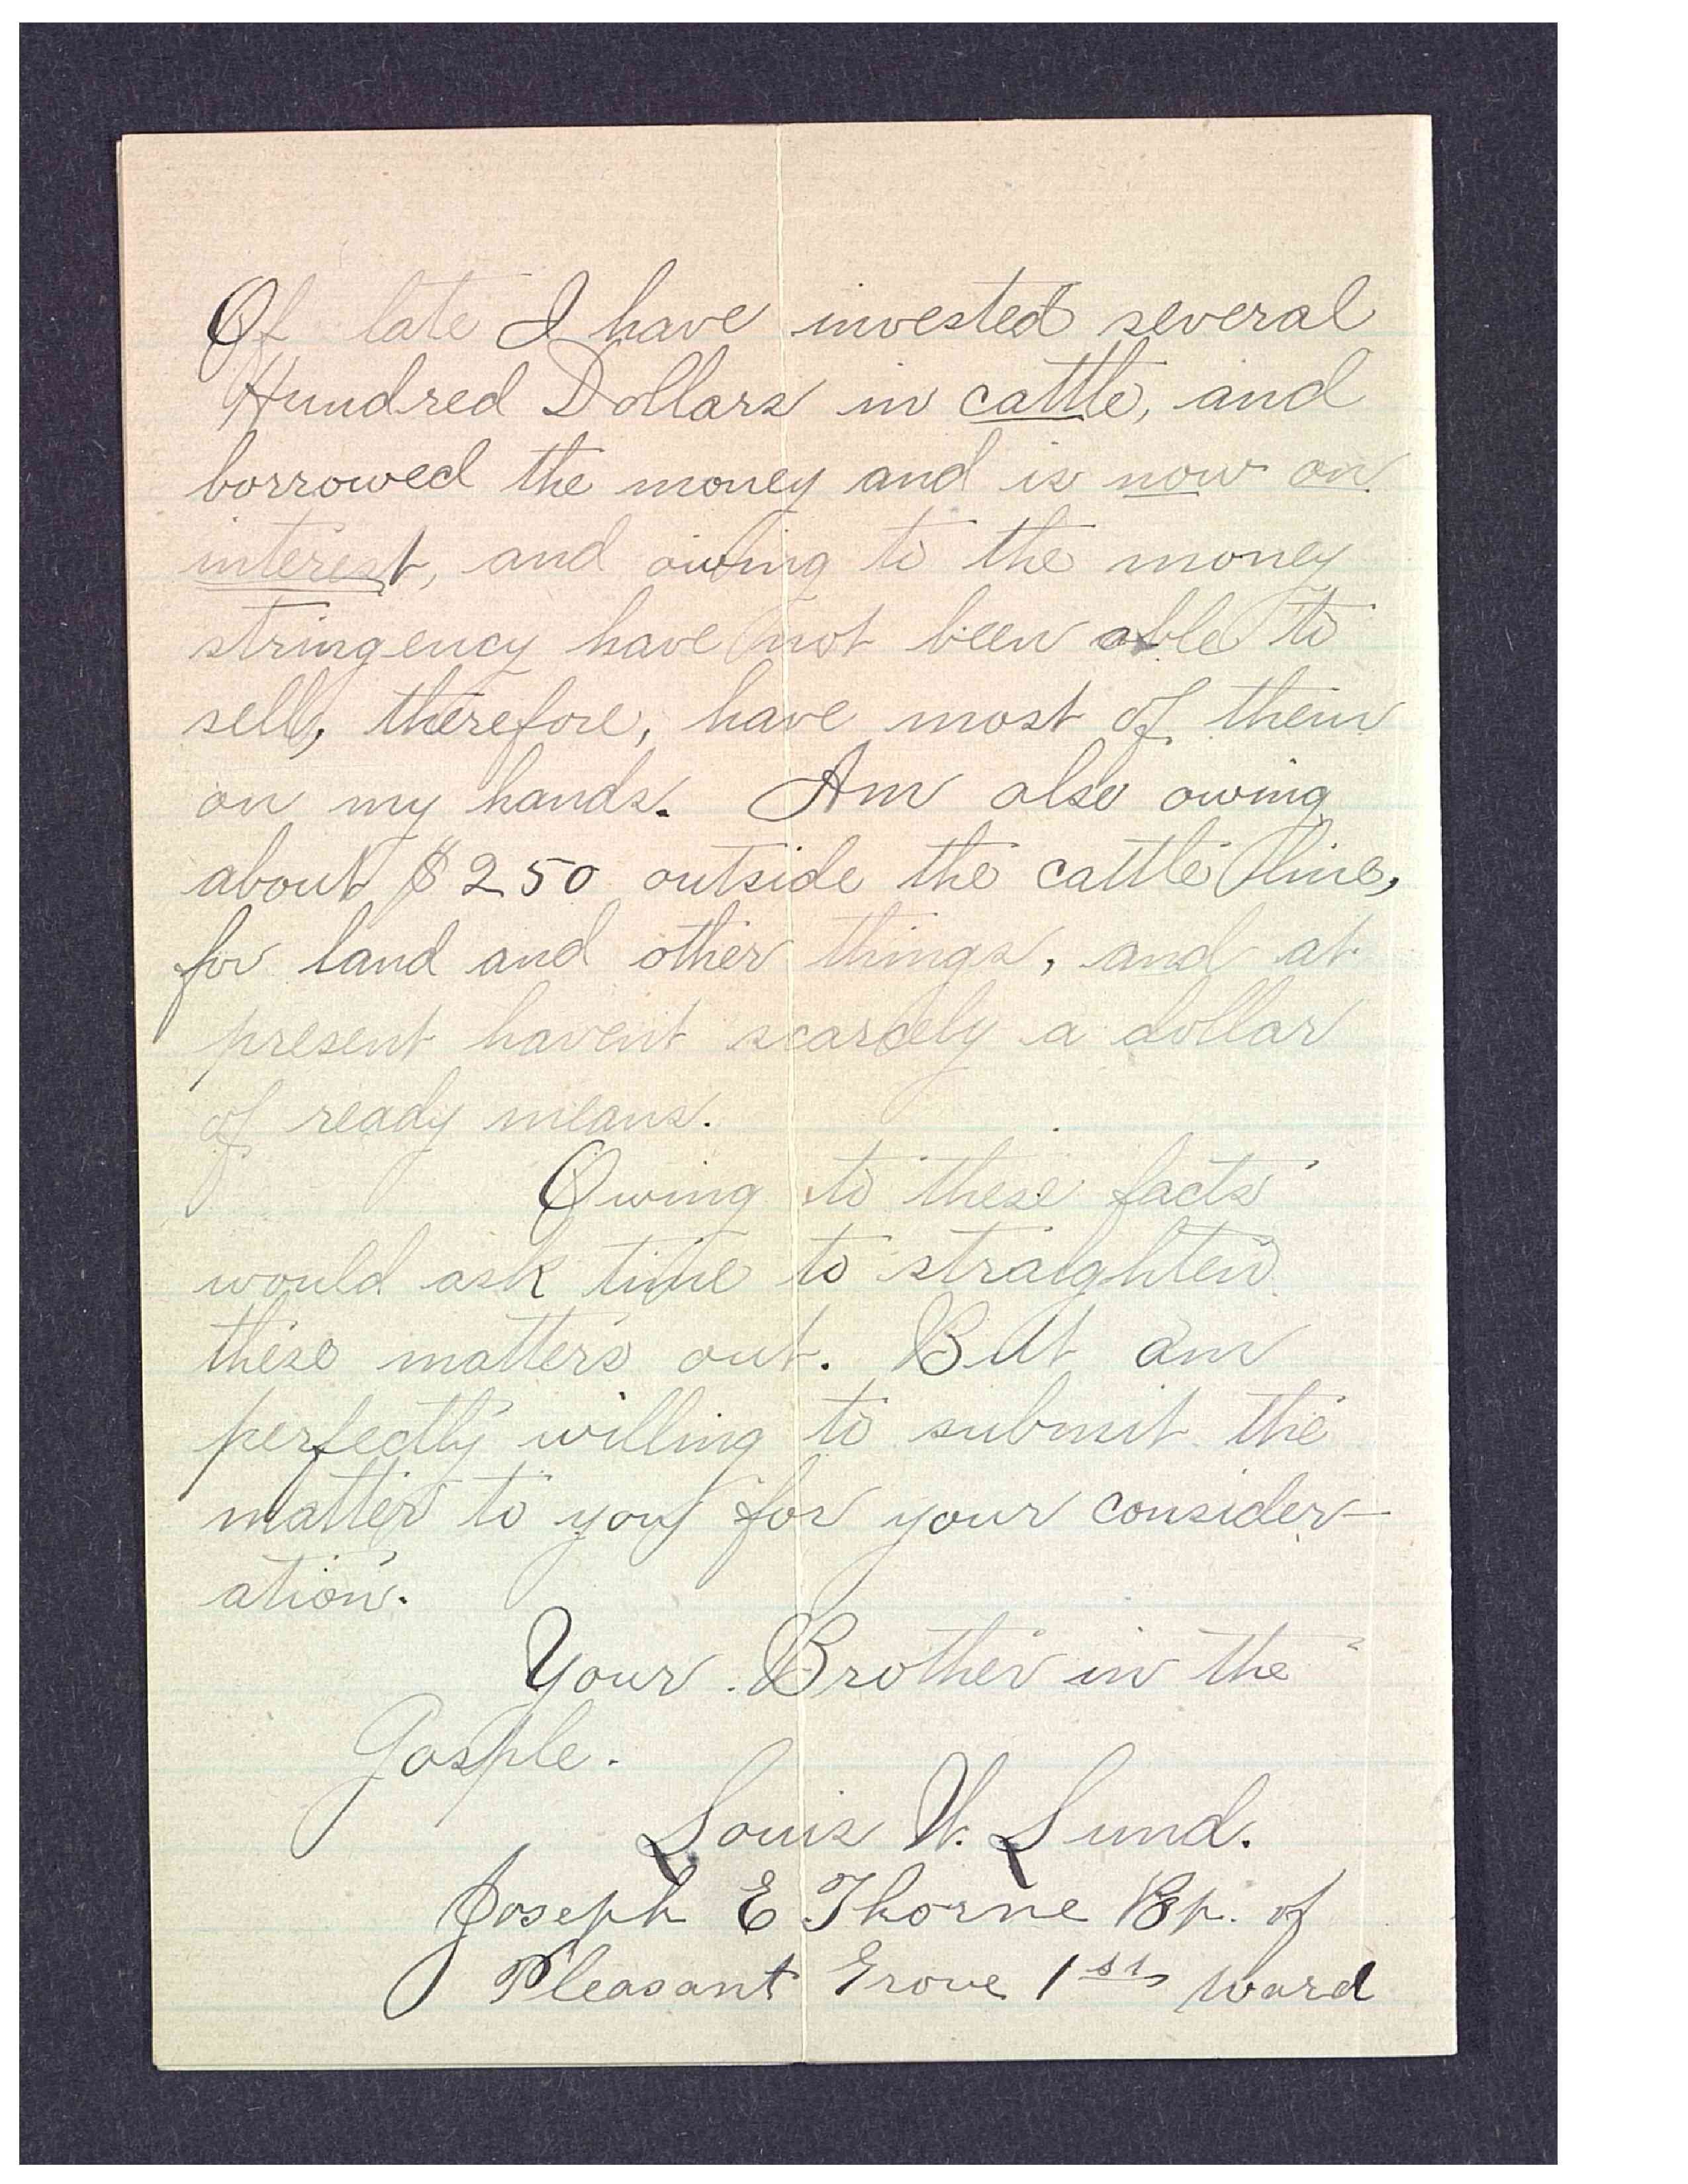 Of late I have invested several
Hundred Dollars in cattle, and
borrowed the money and is now on
interest, and owing to the money
stringency have not been able to
sell, therefore, have most of them
on my hands. Am also owing
about $250 outside the cattle line,
for land and other things, and at
present havent scarcely a dollar
of ready means.
Owing to these facts
would ask time to straighten
these matters out. But am
perfectly willing to submit the
matter to you for your consider-
ation.
Your Brother in the
Gosple.
Louis W. Lund.
Joseph E Thorne Bp. of
Pleasant Grove 1st ward